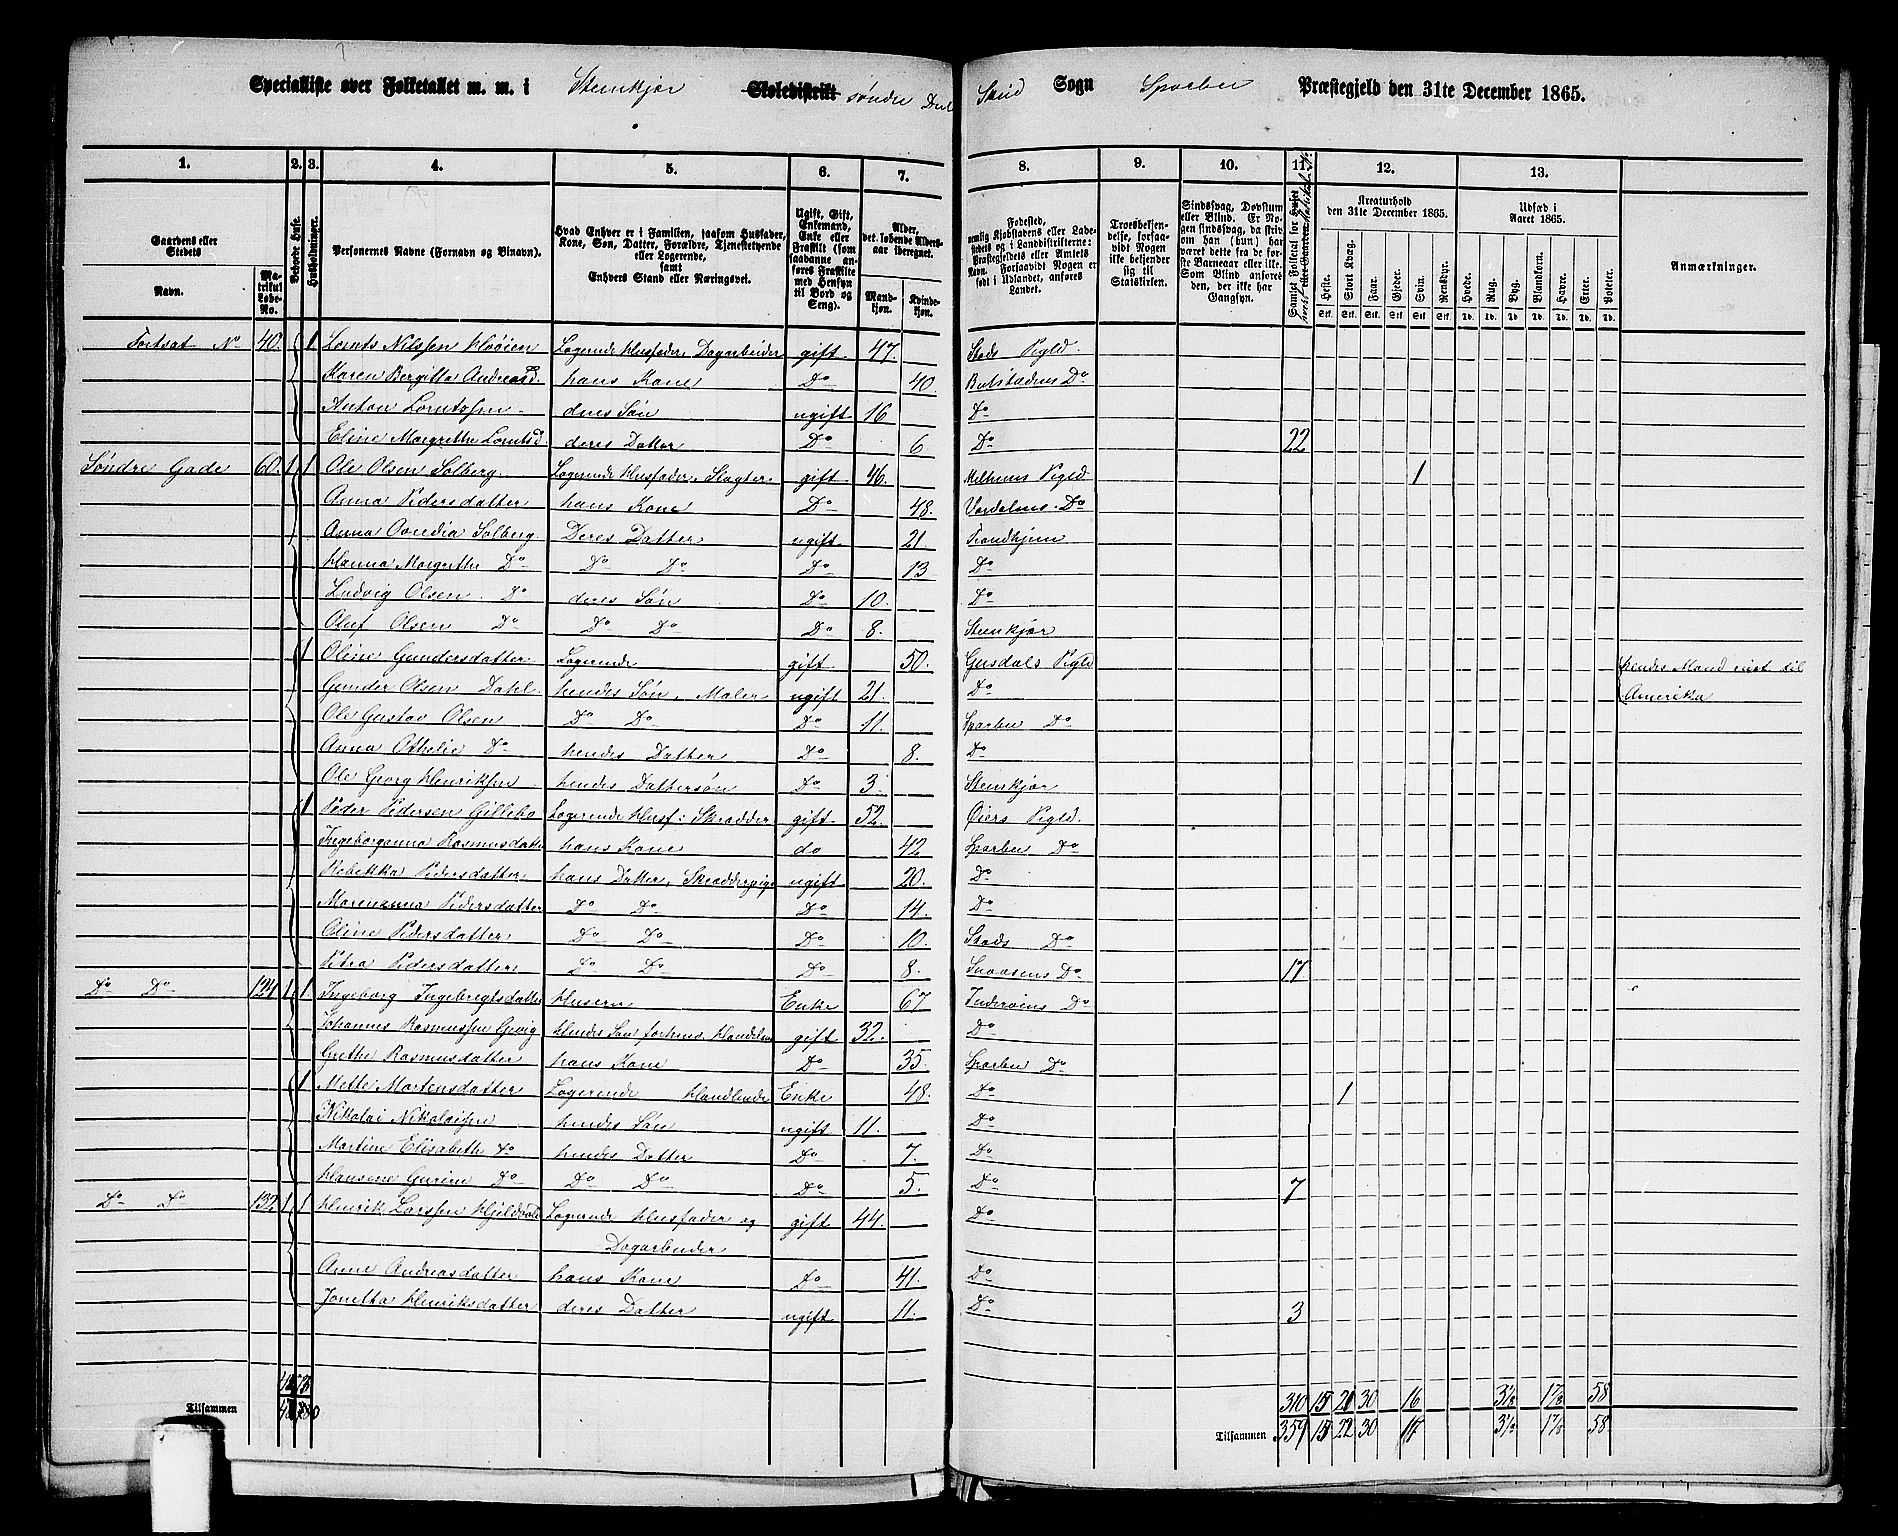 Specialliste over Folketallet m. m. i Steenkjær Skoledistrikt søndre Deel Sogn Sparbu Præstegjeld den 31te December 1865.
1. 2. 3. 4. 5. 6. 7. 8. 9. 10. 11. 12. 13.
Gaardens eller Stedets Navn. Matrikul Løbe-No. Beboede Huse. Husholdninger. Personernes Navne (Fornavn og Tilnavn). Hvad Enhver er i Familien, saasom Husfader, Kone, Søn, Datter, Forældre, Tjenestetyende eller Logerende, samt Enhvers Stand eller Næringsvei. Ugift, Gift, Enkemand, Enke eller Fraskilt (som saadanne anføres Fraskilte med Hensyn til Bord og Seng). Alder, det løbende Aldersaar iberegnet. Mandkjøn. Kvindekjøn.
Fødested, nemlig Kjøbstadens eller Ladestedets og i Landdistrikterne: Præstegjeldets eller Amtets Navn. Forsaavidt Nogen er født i Udlandet, anføres Landet. Troesbekjendelse, forsaavidt Nogen ikke bekjender sig til Statskirken. Sindssvag, Døvstum eller Blind. Er Nogen sindssvag, da skrives om han (hun) har været dette fra de første Barneaar eller ikke. Som Blind anføres den, der ikke har Gangsyn. Kreaturhold den 31te December 1865. Heste. Stort Kvæg. Faar. Gjeder. Svin. Rensdyr. Udsæd i Aaret 1865. Hvede. Rug. Byg. Blandkorn. Havre. Erter. Poteter. Anmærkninger.
Fortsat No 40. 1 Lornts Nilssen Logerende Husfader, Dagarbeider gift 47. Stods Pgld.
Karen Bergitta Andreasd. hans Kone Do 40. Beitstadens Do
Anton Lorntssen deres Søn ugift 16 Do
Eline Margrethe Lorntsd. deres Datter Do 6. Do 22
Søndre Gade 60. 1 1 Ole Olsen Solberg. Logerende Husfader, Slagter. gift 46. Melhuus Pgld. 1
Anna Pedersdatter hans Kone Do 48. Værdalens Do
Anna Solberg Deres Datter ugift 21 Trondhjem
Hanna Margrethe Do Do Do Do 13 Do
Ludvig Olsen Do deres Søn Do 10. Do
Oluf Olsen Do Do Do Do 8. Steenkjær
1 Oline Gundersdatter. Logerende gift 50. Gusdals Pgld Hendes Mand reist til
Gunder Olsen Dahl. hendes Søn, Maler ugift 21. Do Amerika
Ole Gustav Olsen Do Do Do 11. Sparbu Do
Anna Othelie Do hendes Datter Do 8. Do
Ole Georg Henriksen hendes Dattersøn Do 3. Steenkjær
1 Peder Pedersen Gillebo Logerende Husf: Skrædder gift 52. Øiers Pgld.
Ingeboranna Rasmusdatter hans Kone do 42 Sparbu Do
Rebekka Pedersdatter hans Datter, Skrædderpige ugift 20. Do
Marenanna Pedersdatter Do Do Do 14. Do
Oline Pedersdatter Do Do Do 10. Stods Do
Petra Pedersdatter Do Do Do 8. Snaasens Do 17
Do Do 124 1 1 Ingeborg Ingebregtsdatter Huseier Enke 67 Inderøens Do
Johannes Rasmussen Hendes Søn forhens Handelsm gift 32. Do
Grethe Rasmusdatter hans Kone Do 35. Sparbu Do
1 Mette Mortensdatter Logerende Handlende Enke 48. Do 1
Nikolai Nikolaisen hendes Søn ugift 11. Do
Martine Elisabeth Do hendes Datter Do 7. Do
Hansine Gurine Do Do Do Do 5. Do 7
Do Do 132 1 1 Henrik Larssen Logerende Husfader og gift 44. Do
Dagarbeider
Anne Andreasdatter hans Kone Do 41. Do
Jonetta Henriksdatter deres Datter ugift 11. Do 3
310 15 21 30 16 3½ 58
Tilsammen
Tilsammen 359 15 22 30 17 3½ 58.